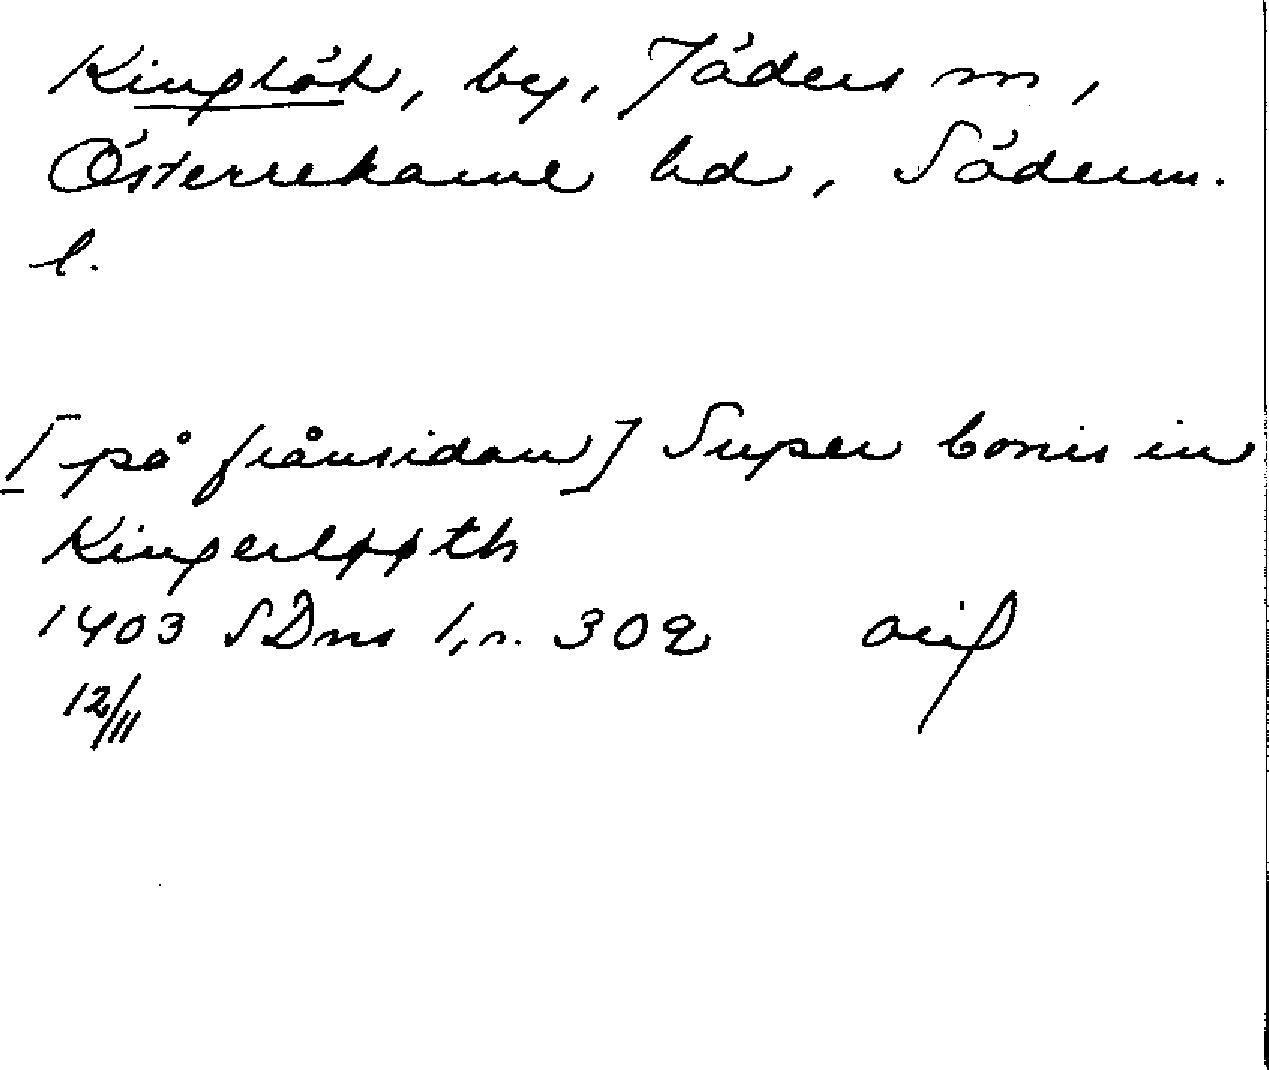 Kinglöt, by, Jäders sn,
Österrekarne hd, Söderm.
l.
[på frånsidan] Super bonis in
Kingerløøth
1403 SDns 1, n. 302 orig
12/11